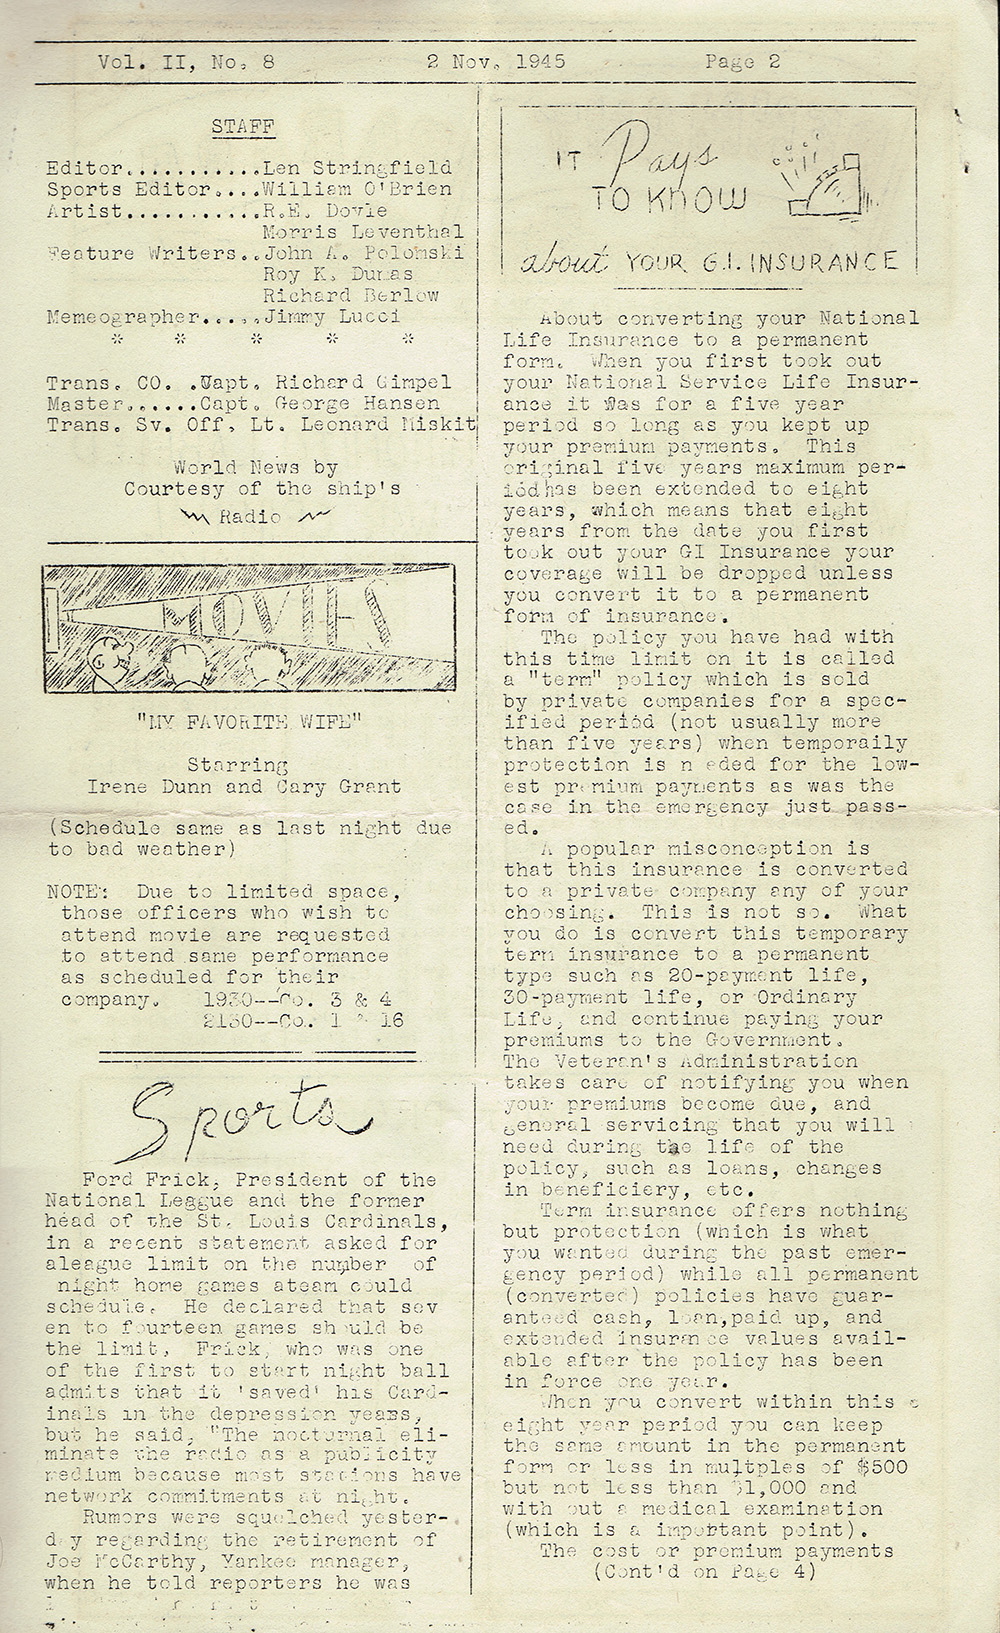 Vol. II, No. 8 2 Nov. 1945 Page 2
STAFF
Editor...........Len Stringfield
Sports Editor....William O'Brien
Artist...........R.E. Doyle
Morris Leventhal
Feature Writers..John A. Polomski
Roy K. Dumas
Richard Berlow
Memeographer......Jimmy Lucci
* * * * *
Trans. CO. .Capt. Richard Gimpel
Master.......Capt. George Hansen
Trans. Sv. Off, Lt. Leonard Miskit
World News by
Courtesy of the ship's
Radio
MOVIES
"MY FAVORITE WIFE"
Starring
Irene Dunn and Cary Grant
(Schedule same as last night due
to bad weather)
NOTE: Due to limited space,
those officers who wish to
attend movie are requested
to attend same performance
as scheduled for their
company. 1930--Co. 3 & 4
2130--Co. 1 & 16
Sports
Ford Frick, President of the
National League and the former
head of the St. Louis Cardinals,
in a recent statement asked for
aleague limit on the number of
night home games ateam could
schedule. He declared that sev
en to fourteen games should be
the limit. Frick, who was one
of the first to start night ball
admits that it 'saved' his Card-
inals in the depression years,
but he said, "The nocturnal eli-
minate the radio as a publicity
medium because most stations have
network commitments at night.
Rumors were squelched yester-
day regarding the retirement of
Joe McCarthy, Yankee manager,
when he told reporters he was
IT Pays
TO KNOW
about YOUR G.I. INSURANCE
About converting your National
Life Insurance to a permanent
form. When you first took out
your National Service Life Insur-
ance it was for a five year
period so long as you kept up
your premium payments. This
original five years maximum per-
iod has been extended to eight
years, which means that eight
years from the date you first
took out your GI Insurance your
coverage will be dropped unless
you convert it to a permanent
form of insurance.
The policy you have had with
this time limit on it is called
a "term" policy which is sold
by private companies for a spec-
ified period (not usually more
than five years) when temporaily
protection is n eded for the low-
est premium payments as was the
case in the emergency just pass-
ed.
A popular misconception is
that this insurance is converted
to a private company any of your
choosing. This is not so. What
you do is convert this temporary
term insurance to a permanent
type such as 20-payment life,
30-payment life, or Ordinary
Life, and continue paying your
premiums to the Government.
The Veteran's Administration
takes care of notifying you when
your premiums become due, and
general servicing that you will
need during the life of the
policy, such as loans, changes
in beneficiery, etc.
Term insurance offers nothing
but protection (which is what
you wanted during the past emer-
gency period) while all permanent
(converted) policies have guar-
anteed cash, loan,paid up, and
extended insurance values avail-
able after the policy has been
in force one year.
When you convert within this
eight year period you can keep
the same amount in the permanent
form or less in multples of $500
but not less than $1,000 and
with out a medical examination
(which is a important point).
The cost or premium payments
(Cont'd on Page 4)